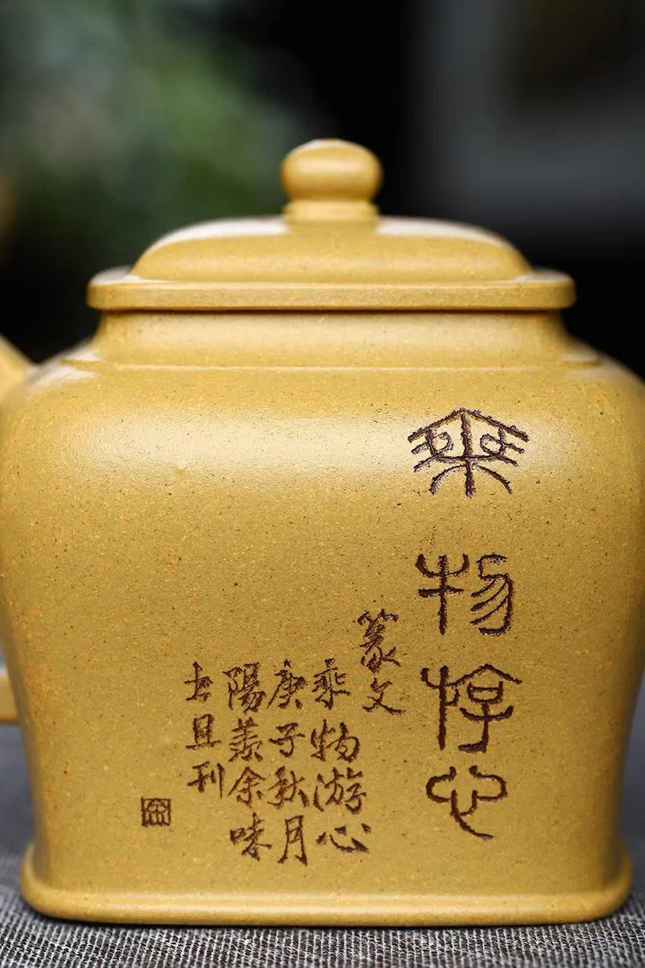 乘物游心
篆文
乘物游心
庚子秋月
陽羨余味
古且刊